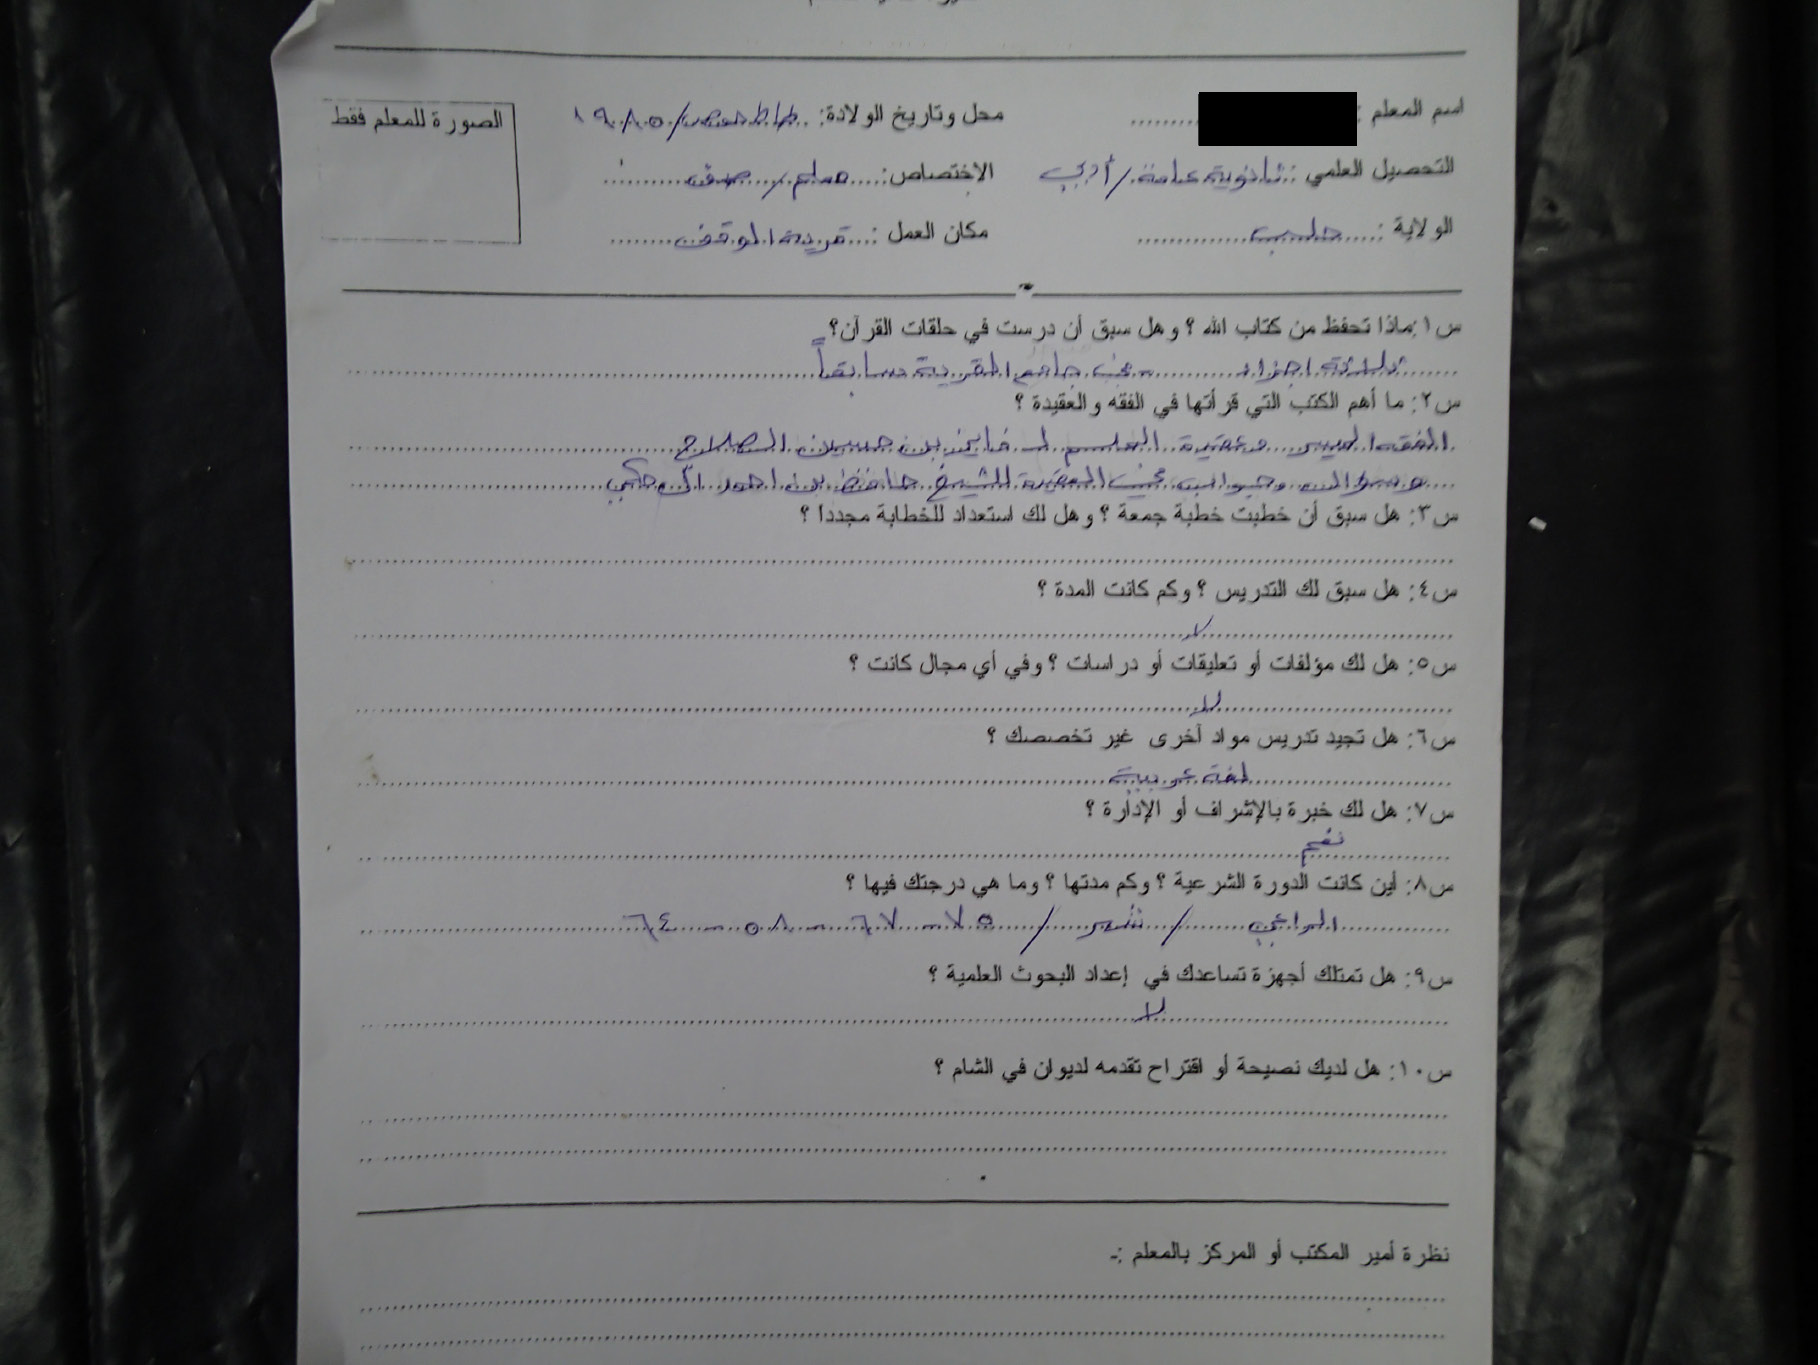 اسم المعلم :
محل وتاريخ الولادة: ١٩٨٥/
الصورة للمعلم فقط
التحصيل العلمي : ثانوية عامة / أدبي
الاختصاص: معلم / صف
الولاية : حلب
مكان العمل : قرية الوقف
س١: ماذا تحفظ من كتاب الله ؟ وهل سبق أن درست في حلقات القرآن؟
ثلاثة اجزاء في جامع القرية سابقاً
س٢: ما أهم الكتب التي قرأتها في الفقه والعقيدة ؟
الفقه الميسر وعقيدة المسلم لـ فايز بن حسين الصلاح
وسؤال وجواب في العقيدة للشيخ حافظ بن احمد الحكمي
س٣: هل سبق أن خطبت خطبة جمعة ؟ وهل لك استعداد للخطابة مجددا ؟
س٤: هل سبق لك التدريس ؟ وكم كانت المدة ؟
لا
س٥: هل لك مؤلفات أو تعليقات أو دراسات ؟ وفي أي مجال كانت ؟
لا
س٦: هل تجيد تدريس مواد أخرى غير تخصصك ؟
لغة عربية
س٧: هل لك خبرة بالإشراف أو الإدارة ؟
نعم
س٨: أين كانت الدورة الشرعية ؟ وكم مدتها ؟ وما هي درجتك فيها ؟
الراعي / شهر / ٧٥ - ٦٧ - ٥٨ - ٦٤
س٩: هل تمتلك أجهزة تساعدك في إعداد البحوث العلمية ؟
لا
س١٠: هل لديك نصيحة أو اقتراح تقدمه لديوان في الشام ؟
نظرة أمير المكتب أو المركز بالمعلم :-